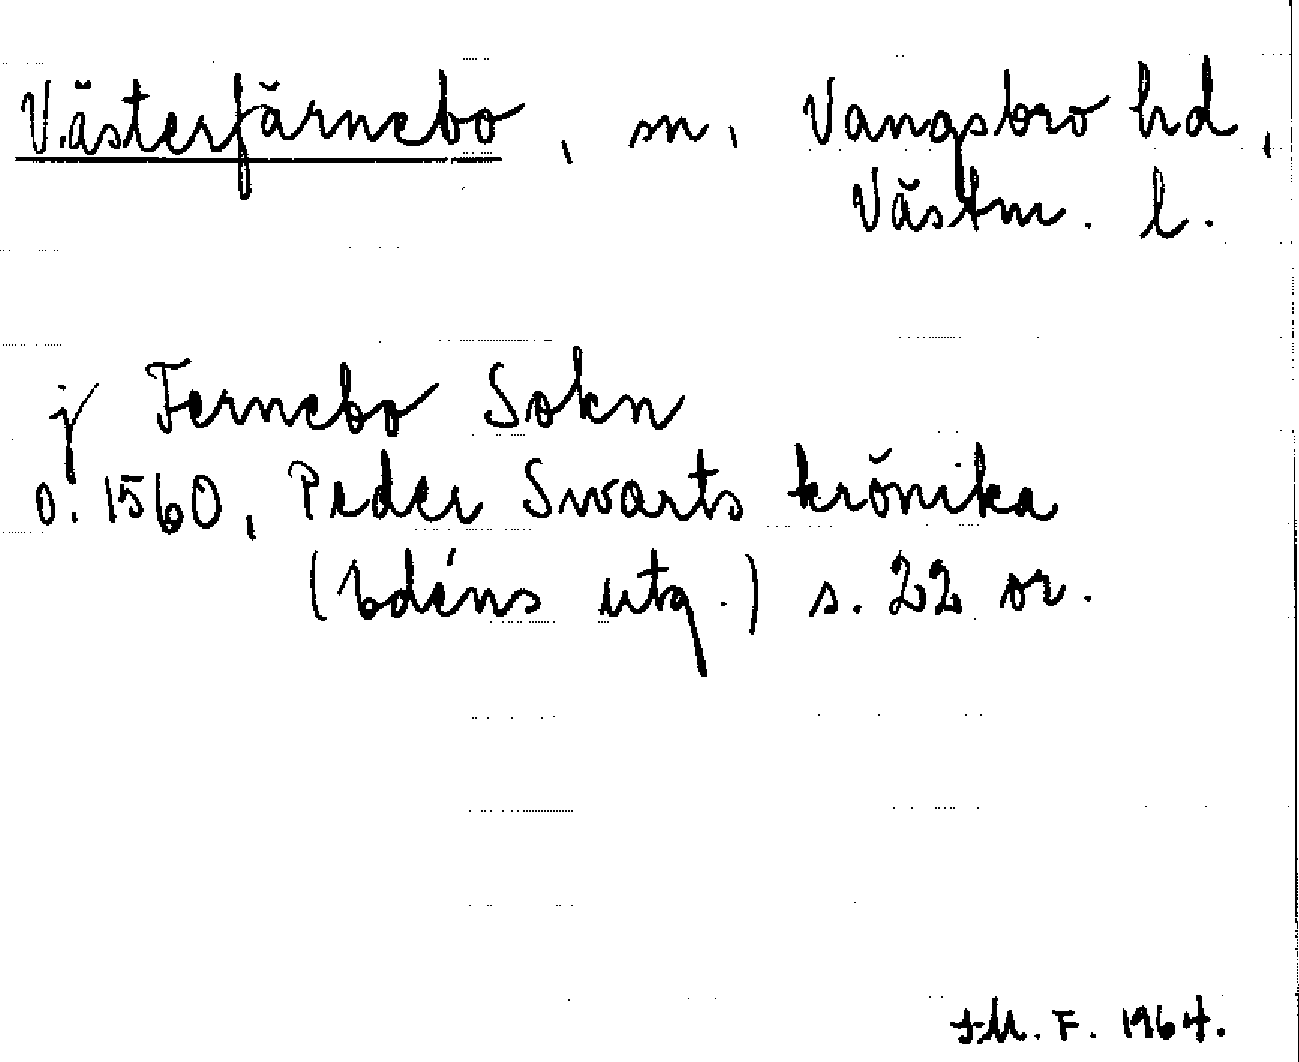 Västerfärnebo, sn, Vangsbro hd,
Västm. l.
j Fernebo Sokn
o. 1560, Peder Swarts krönika
(Edéns utg.) s. 22 or.
J.M.F. 1964.